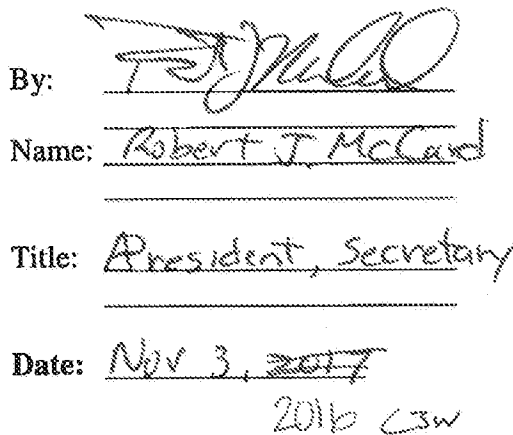 By:
Name: Robert J. McCard
Title: President, Secretary
Date: Nov 3, 2017
2016